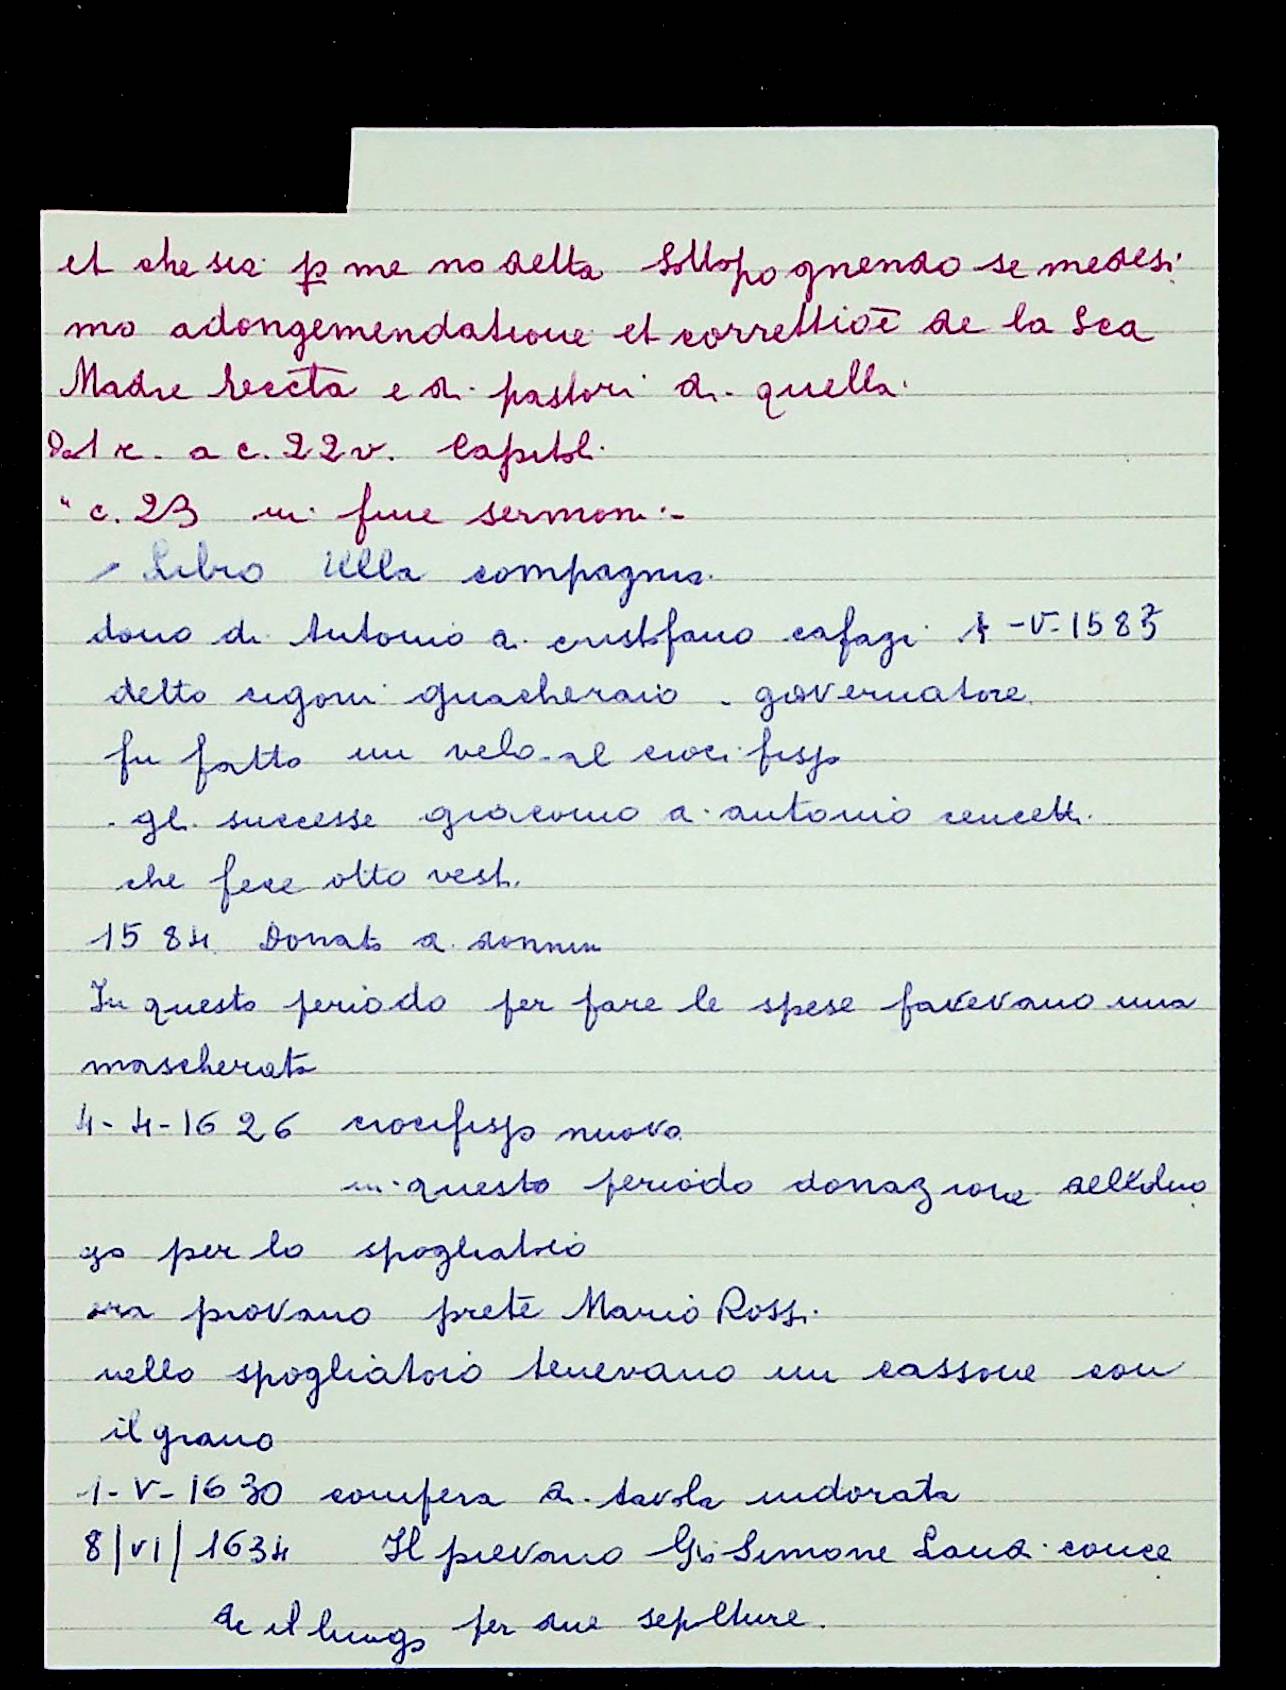 et che sia p me no detta Sottopognendo se medesi
mo adongemendatione et correttioē de la Sca
Madre Eccta e di pastori di quella
Dal c. a c. 22v. Capitoli
" c. 23 in fine sermoni -
- Libro della compagnia
dono di Antonio di cristofano cafagi 1-V-1583
detto rigoni guacheraio - governatore
fu fatto un velo al crocifisso
. gli successe giacomo di antonio cencetti
che fece otto vesti
1584 Donato di
In questo periodo per fare le spese facevano una
mascherata
4-4-1626 crocifisso nuovo
in questo periodo donazione dell
go per lo spogliatoio
era piovano prete Mario Rossi
nello spogliatoio tenevano un cassone con
il grano
1-V-1630 compera di tavola indorata
8/VI/1634 Il pievano Gio Simone Landi conce
de il luogo per due sepolture.